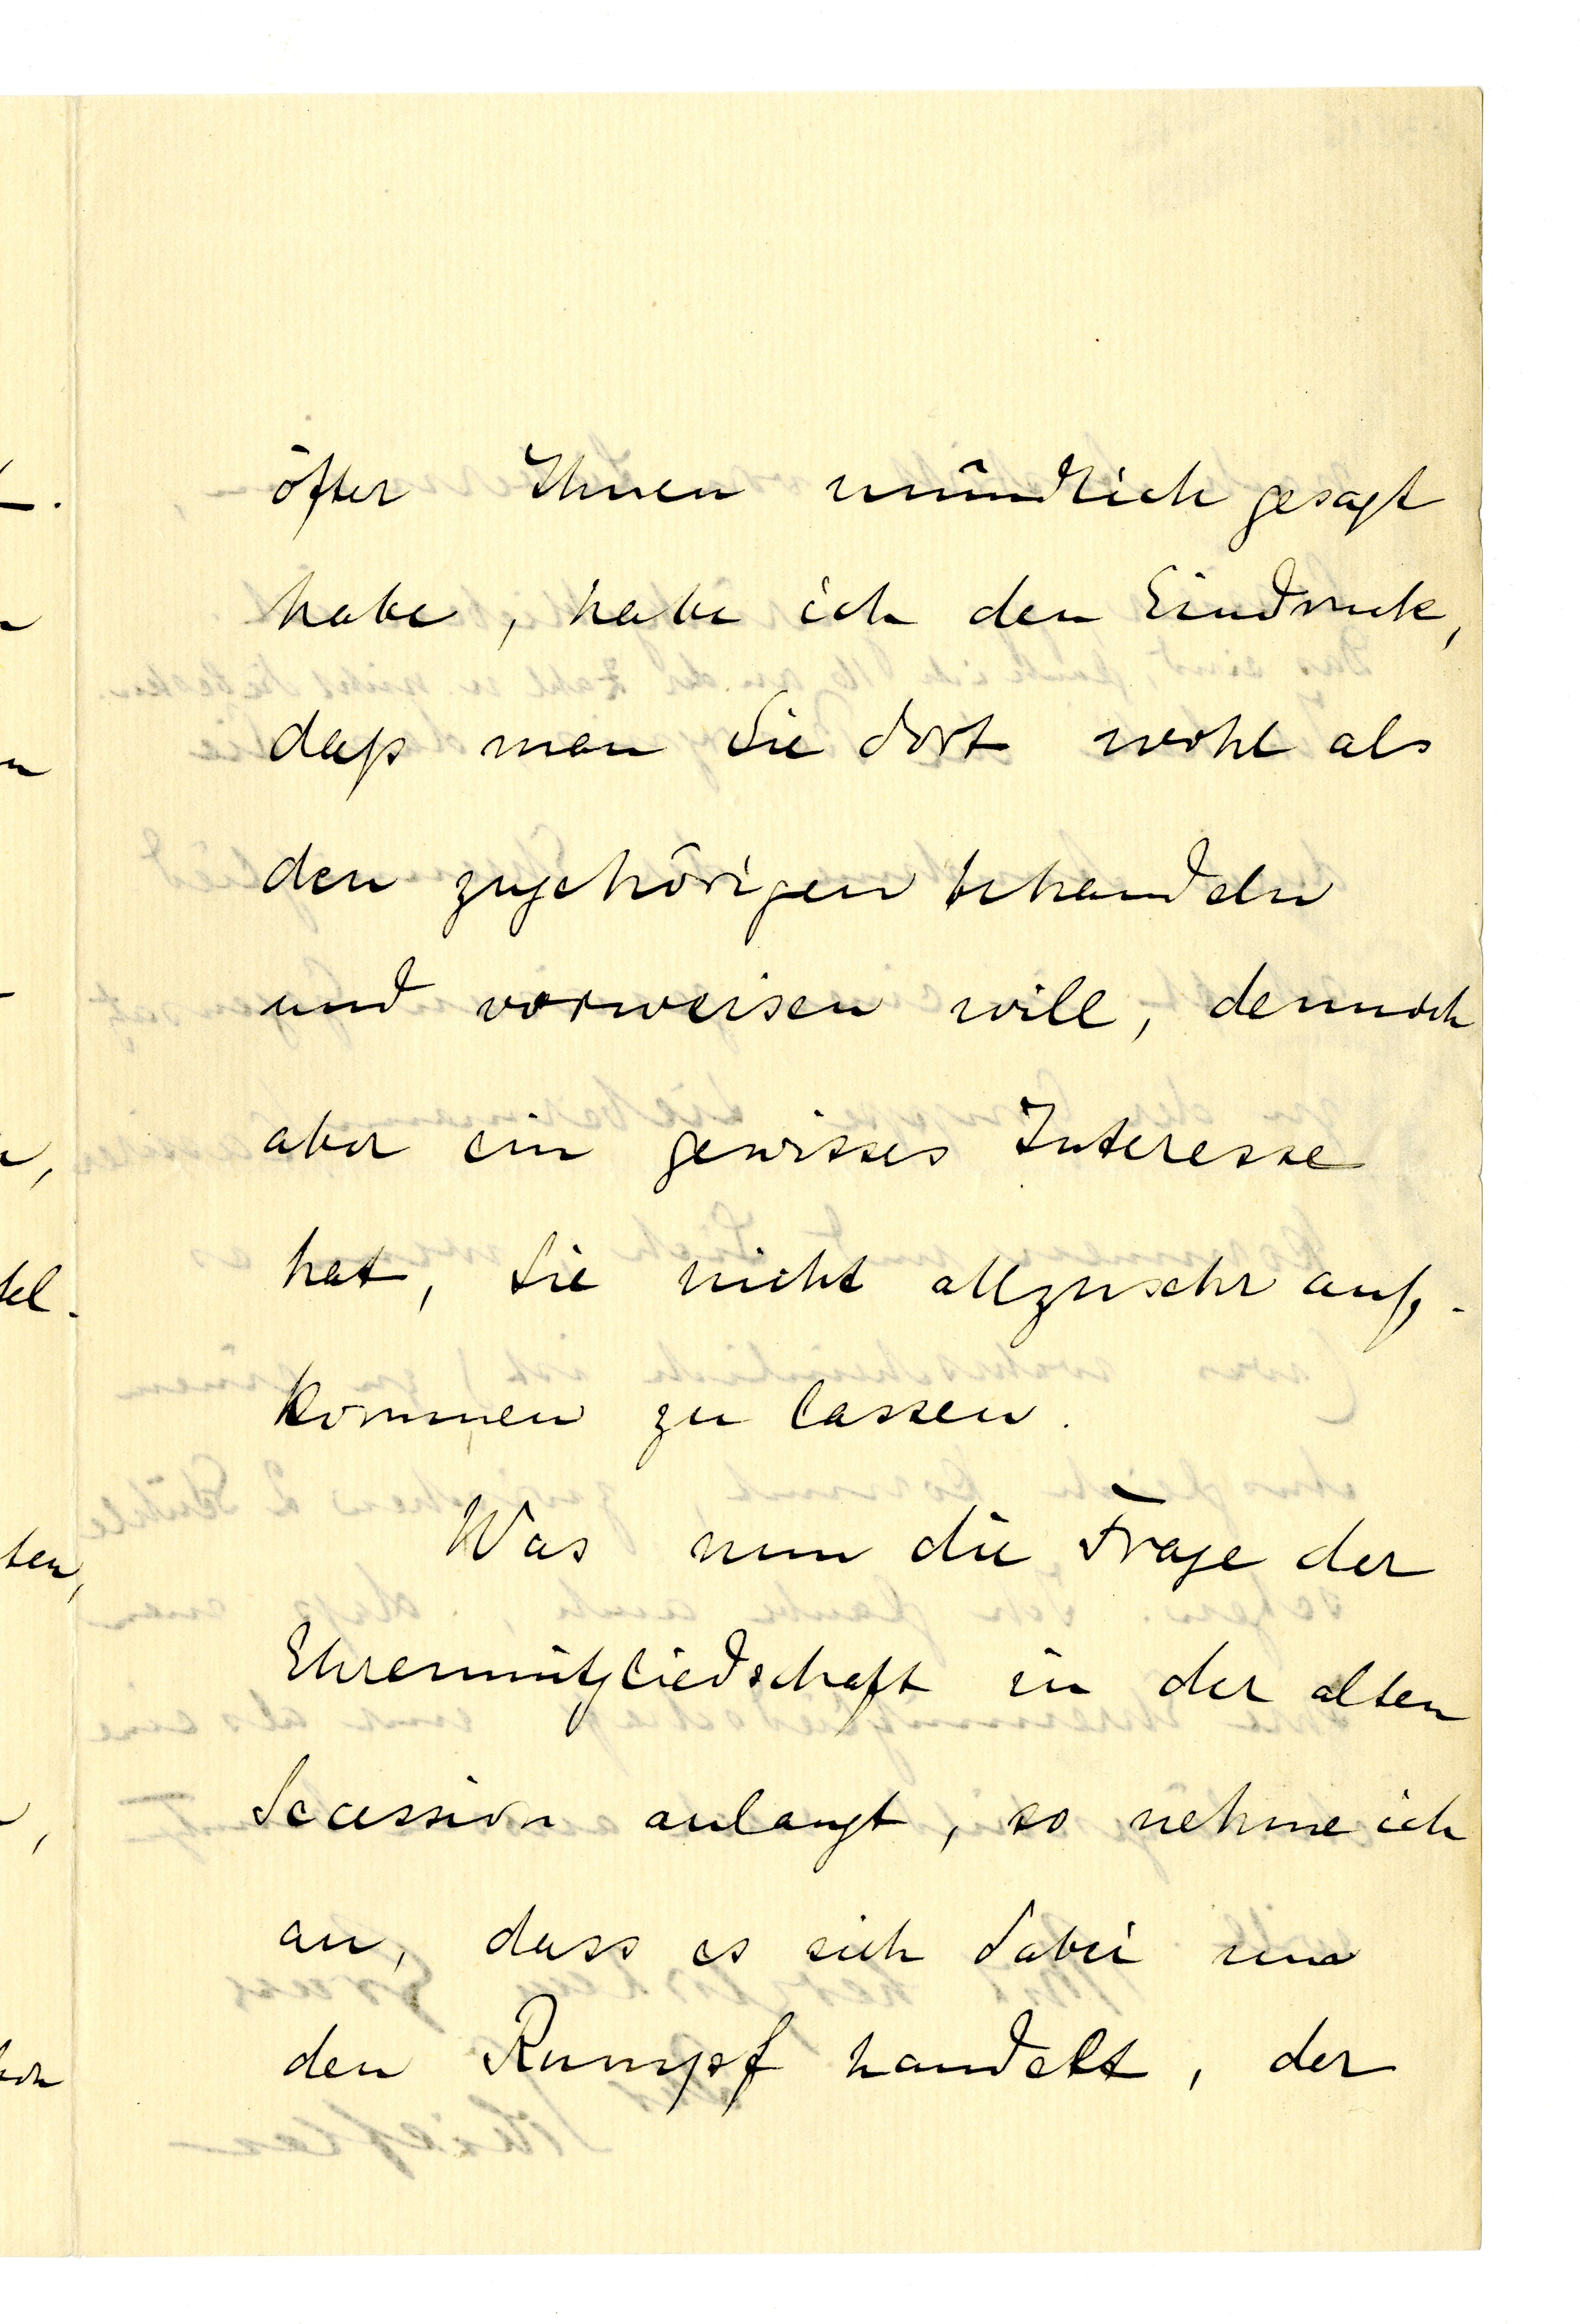 öfter Ihnen mündlich gesagt
habe, habe ich den Eindruck,
daß man Sie dort wohl als
den zugehörigen behandeln
und vorweisen will, dennoch
aber ein gewisses Interesse
hat, Sie nicht allzusehr auf-
kommen zu lassen.
Was nun die Frage der
Ehrenmitgliedschaft in der alten
Secession anlangt, so nehme ich
an, dass es sich dabei um
den Rumpf handelt, der